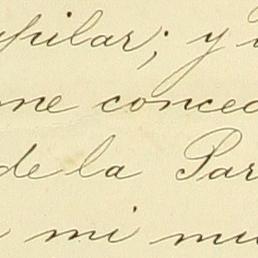 pilar; y
me conced
de la Par
mi mu